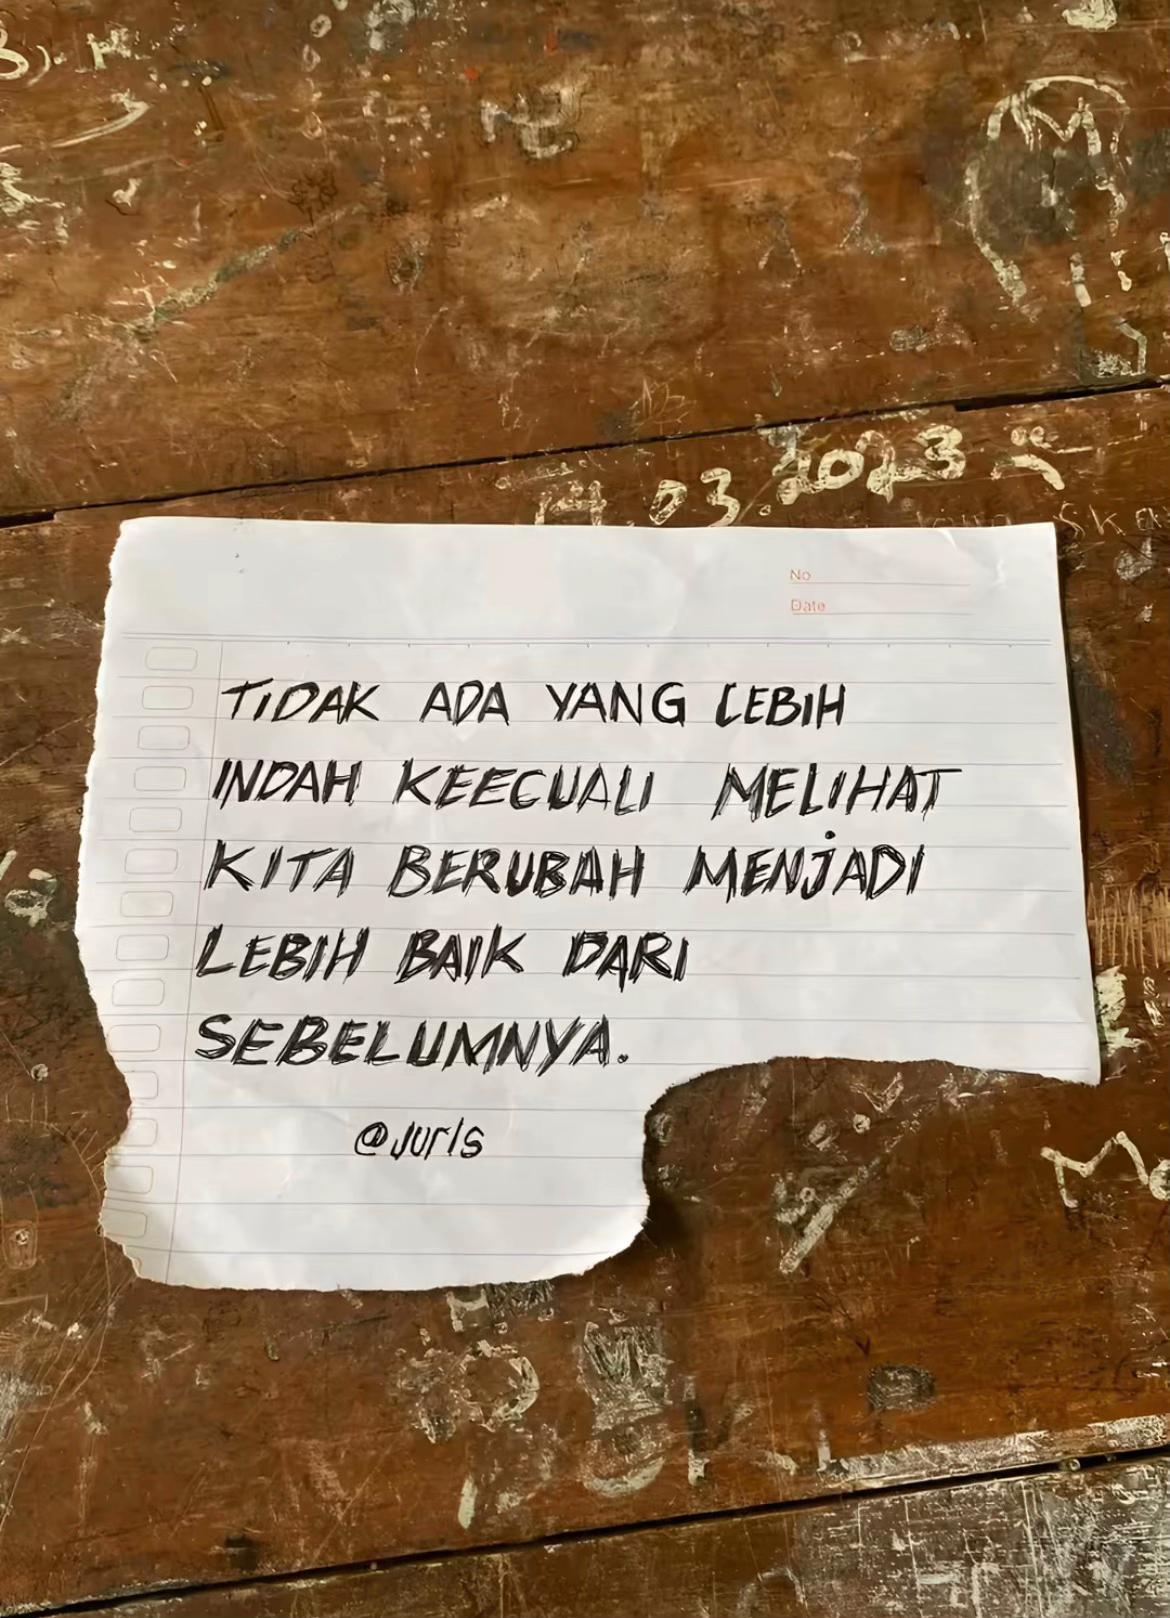 14.03.2023
No
Date
TIDAK ADA YANG LEBIH
INDAH KEECUALI MELIHAT
KITA BERUBAH MENJADI
LEBIH BAIK DARI
SEBELUMNYA.
@juris